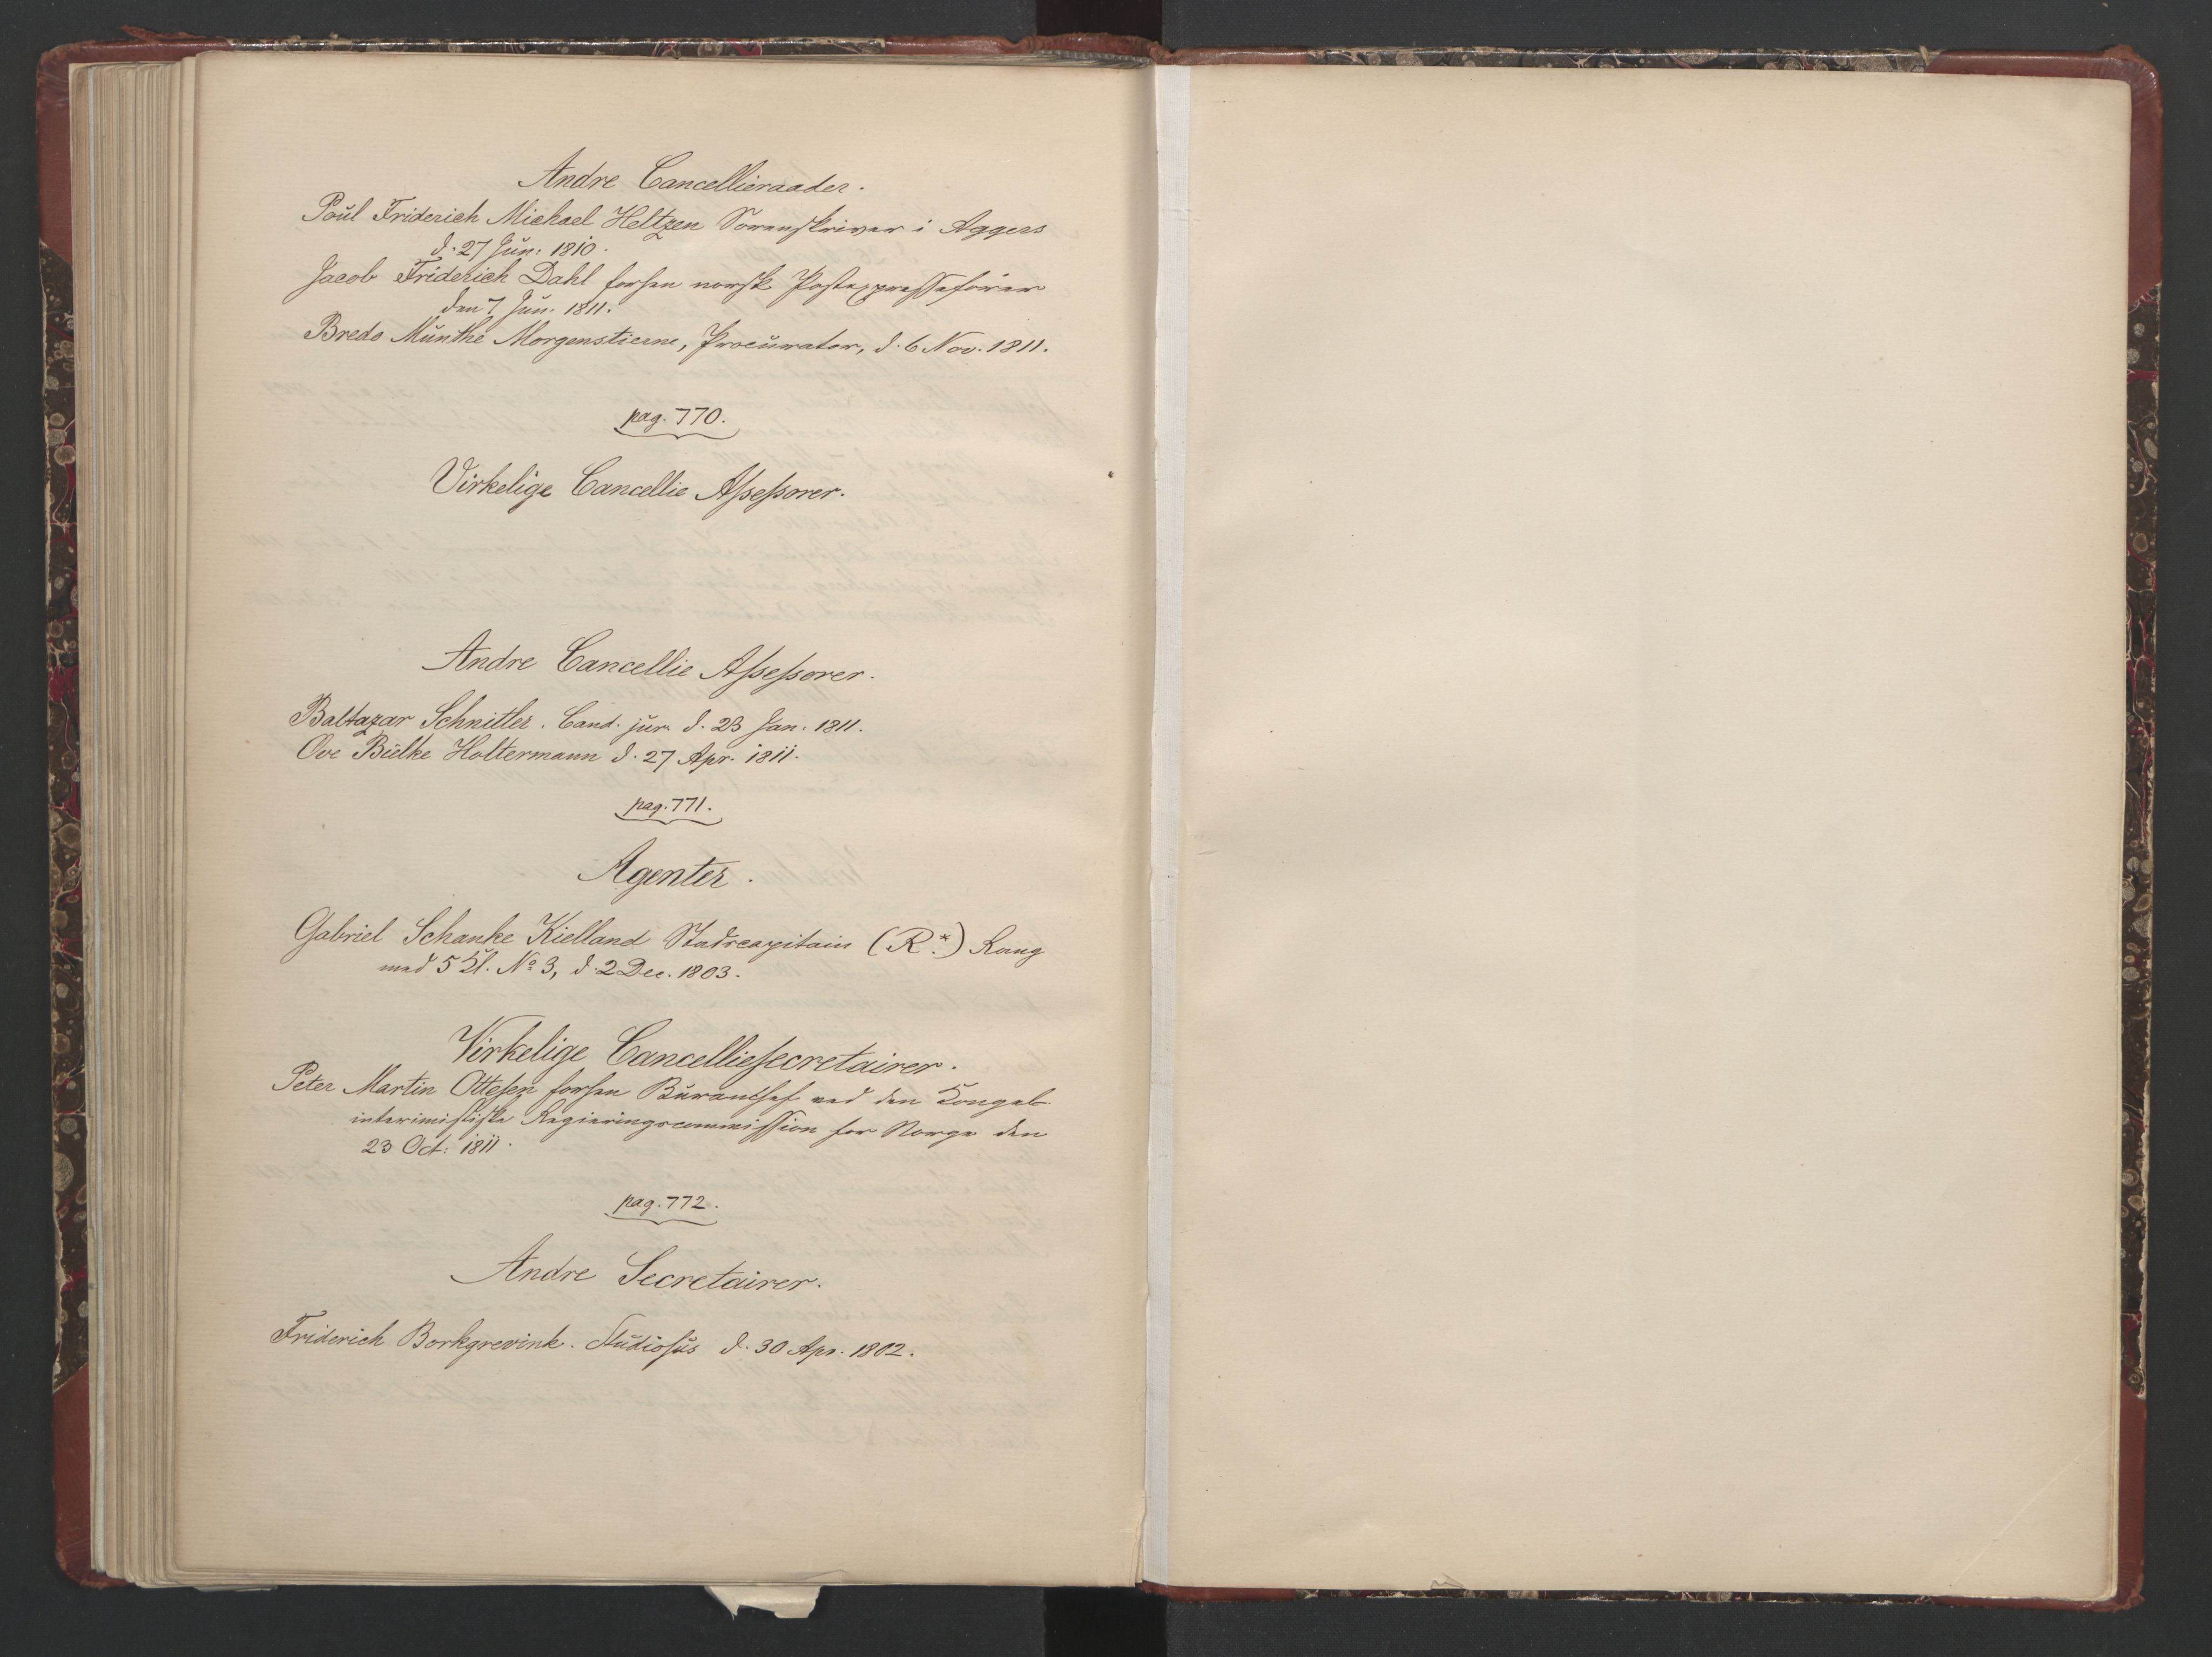 Andre Cancellieraader.
Poul Friderich Michael Heltzen Sorenskriver i Aggers
d. 27 Jun: 1810.
Jacob Friderich Dahl forhen norsk Postexpressefører
den 7 Jun. 1811.
Bredo Munthe Morgenstierne, Procurator, d. 6 Nov. 1811.
pag. 770.
Virkelige Cancellie Assessorer.
Andre Cancellie Assessorer.
Baltazar Schnitler. Cand. jur. d. 23 Jan: 1811.
Ove Bielke Holtermann d. 27 Apr. 1811.
pag. 771.
Agenter.
Gabriel Schanke Kielland Stadscapitain (R.*) Rang
med 5 Kl. No 3, d. 2 Dec. 1803.
Virkelige Cancelliesecretairer.
Peter Martin Ottesen forhen Burauchef ved den Kongel.
interimistiske Regieringscommission for Norge den
23 Oct: 1811.
pag. 772.
Andre Secretairer.
Friderich Borkgrevink. Studiosus d. 30 Apr. 1802.